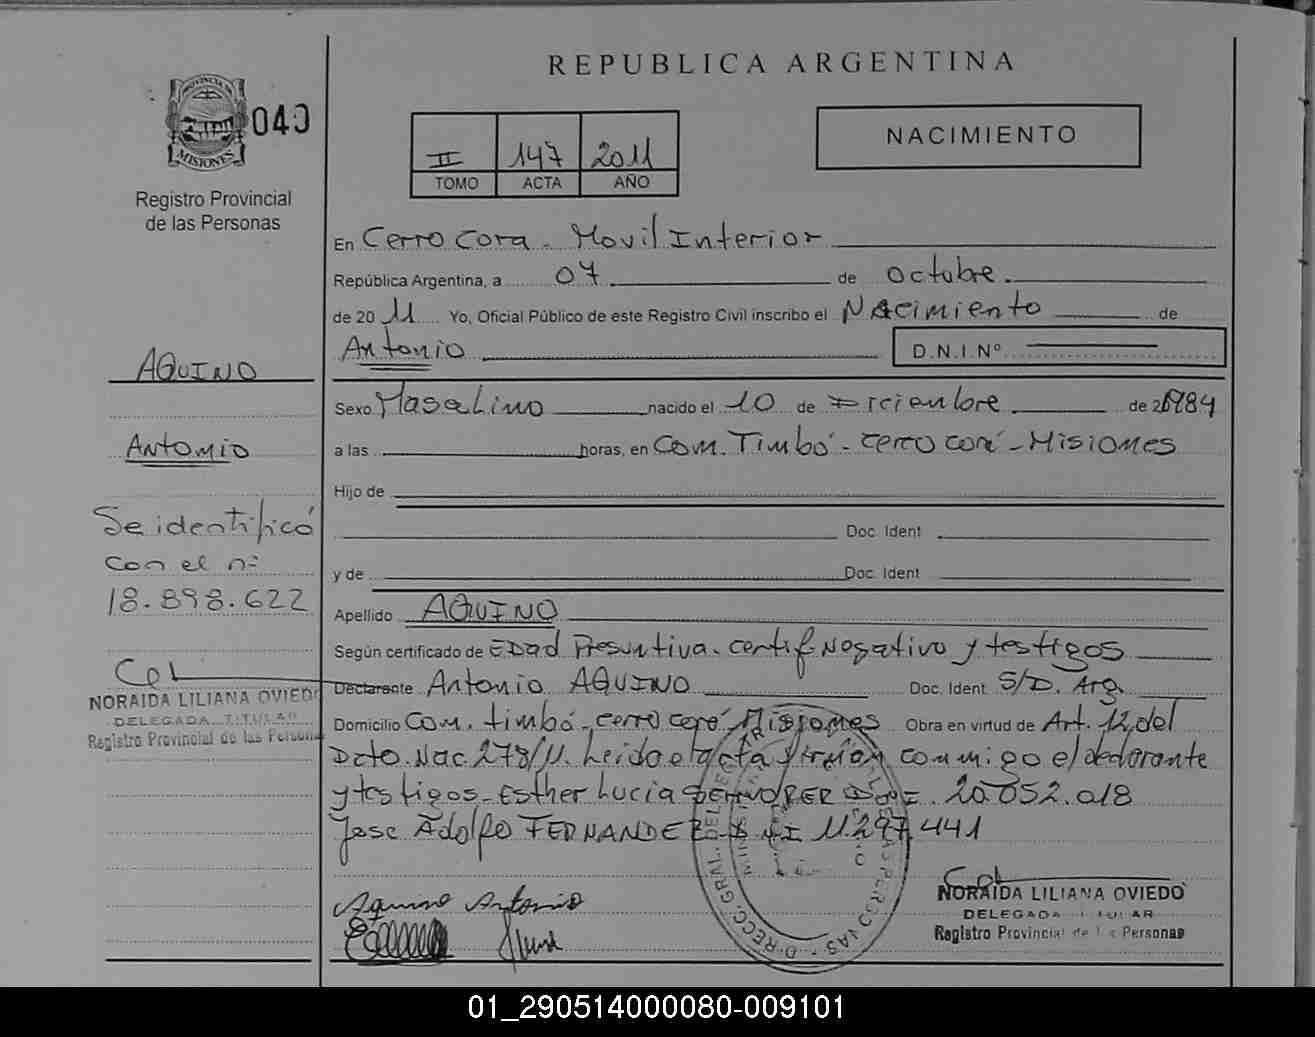 REPUBLICA ARGENTINA
PROVINCIA DE
MISIONES
040
Registro Provincial
de las Personas
II 147 2011
TOMO ACTA AÑO
NACIMIENTO
En Cerro Cora - Movil Interior
República Argentina, a 07 de Octubre.
de 20 11 Yo, Oficial Público de este Registro Civil inscribo el Nacimiento de
Antonio D.N.I.Nº
AQUINO
Antonio
Se identificó
con el nº
18.898.622
NORAIDA LILIANA OVIEDO
DELEGADA TITULAR
Registro Provincial de las Personas
Sexo Masculino nacido el 10 de Diciembre de 1984
a las horas, en Com. Timbó - Cerro Corá - Misiones
Hijo de
Doc. Ident
y de Doc. Ident
Apellido AQUINO
Según certificado de Edad Presuntiva. certif Negativo y testigos
Declarante Antonio AQUINO Doc. Ident S/D. Arg.
Domicilio Com. timbó - cerro corá Misiones Obra en virtud de Art. 12 del
Dcto. Nac. 278/11. Leido el acta firman conmigo el declarante
y testigos - Esther Lucia 20.052.018
Jose Adolfo FERNANDEZ 11.297.441
Aquino Antonio
NORAIDA LILIANA OVIEDO
DELEGADA TITULAR
Registro Provincial de las Personas
01_290514000080-009101